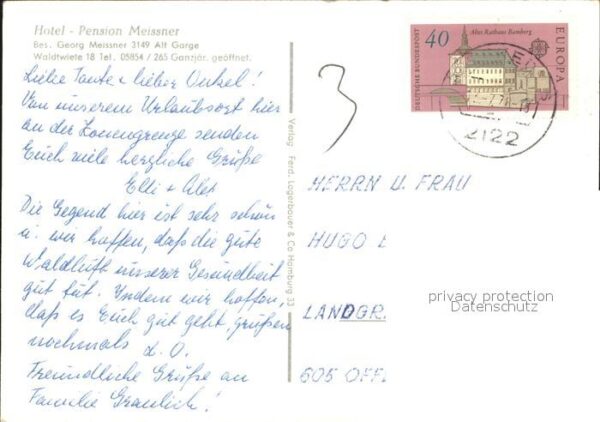 Hotel - Pension Meissner
Bes. Georg Meissner 3149 Alt Garge
Waldwiete 18 Tel. 05854 / 265 Ganzjär. geöffnet.
Liebe Tante + lieber Onkel!
Von unserem Urlaubsort hier
an der Zonengrenze senden
Euch viele herzliche Grüße
Elli + Alex
Die Gegend hier ist sehr schön
u. wir hoffen, daß die gute
Waldluft unserer Gesundheit
gut tut. Indem wir hoffen,
daß es Euch gut geht, grüßen
nochmals d. O.
Freundliche Grüße an
Familie Graulich!
Verlag Ferd. Lagerbauer & Co Hamburg 33
3
DEUTSCHE BUNDESPOST
40
Altes Rathaus Bamberg
EUROPA
2122
HERRN U. FRAU
HUGO
LANDGR.
605 OFF.
privacy protection
Datenschutz